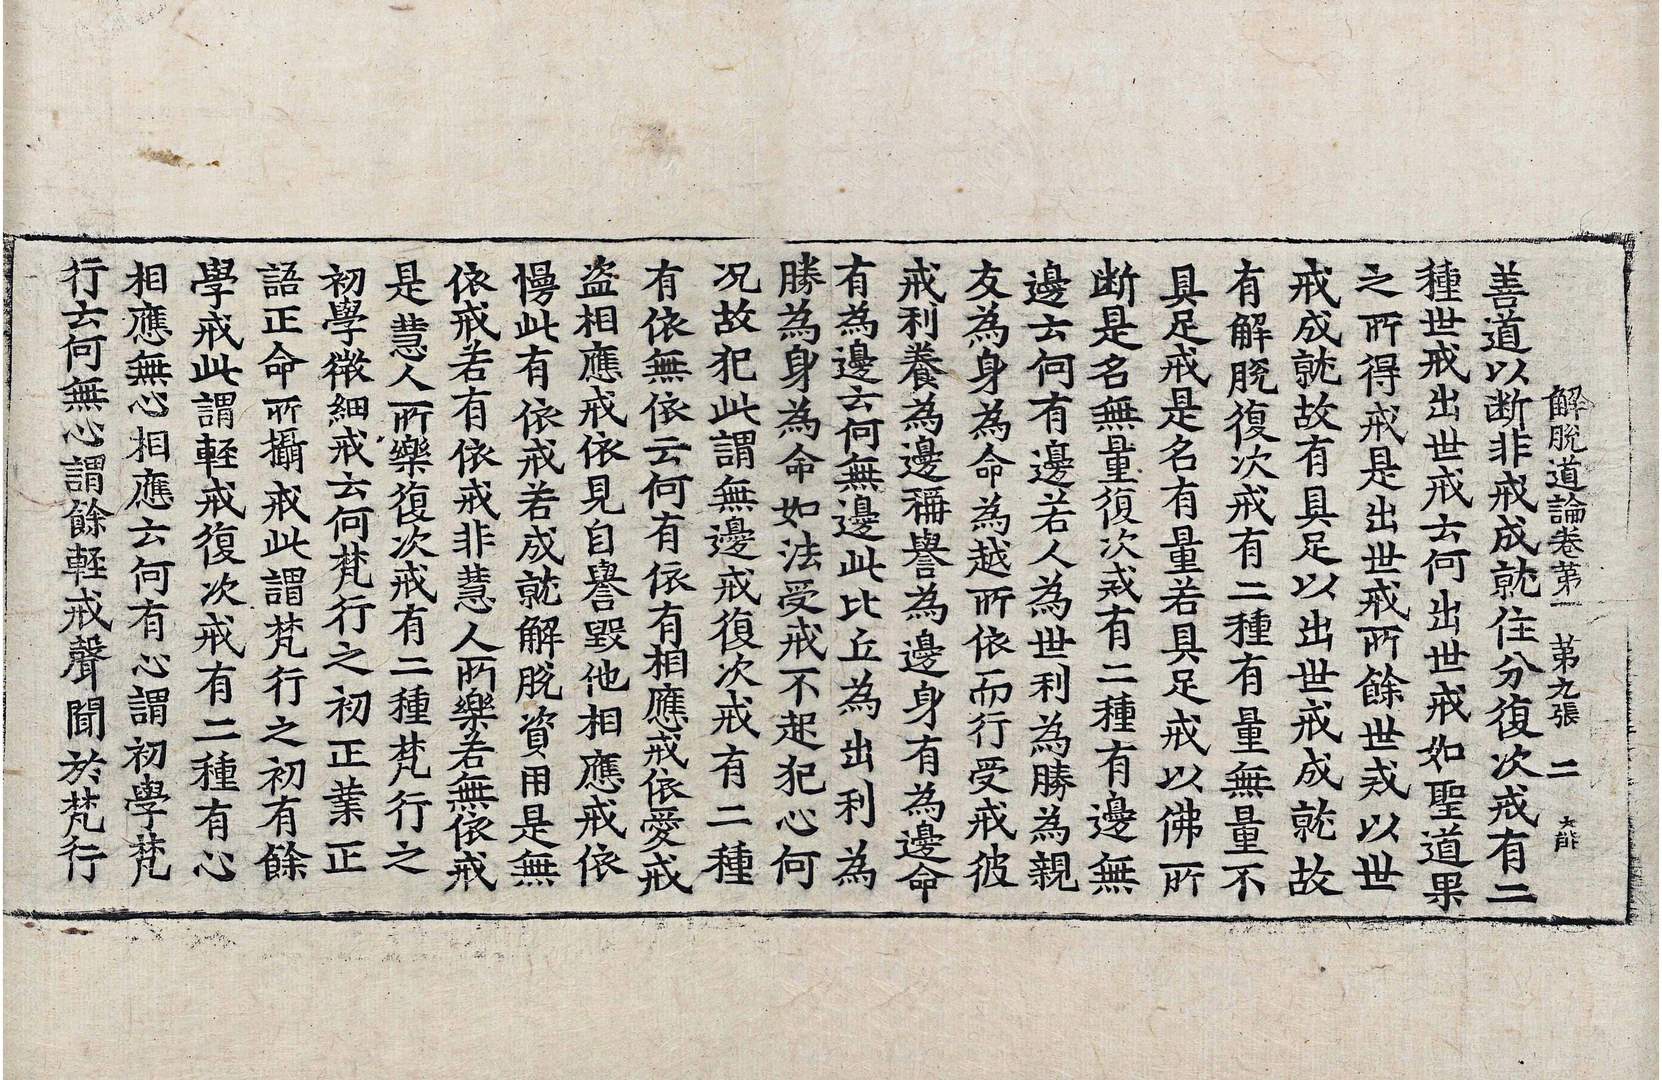 解脫道論卷第一 第九張 二 大能
善道以断非戒成就住分復次戒有二
種世戒出世戒云何出世戒如聖道果
之所得戒是出世戒所餘世戒以世
戒成就故有具足以出世戒成就故
有解脫復次戒有二種有量無量不
具足戒是名有量若具足戒以佛所
断是名無量復次戒有二種有邊無
邊云何有邊若人為世利為勝為親
友為身為命為越所依而行受戒彼
戒利養為邊稱譽為邊身有為邊命
有為邊云何無邊此比丘為出利為
勝為身為命如法受戒不起犯心何
况故犯此謂無邊戒復次戒有二種
有依無依云何有依有相應戒依愛戒
盜相應戒依見自譽毀他相應戒依
慢此有依戒若成就解脫資用是無
依戒若有依戒非慧人所樂若無依戒
是慧人所樂復次戒有二種梵行之
初學微細戒云何梵行之初正業正
語正命所攝戒此謂梵行之初有餘
學戒此謂輕戒復次戒有二種有心
相應無心相應云何有心謂初學梵
行云何無心謂餘輕戒聲聞於梵行